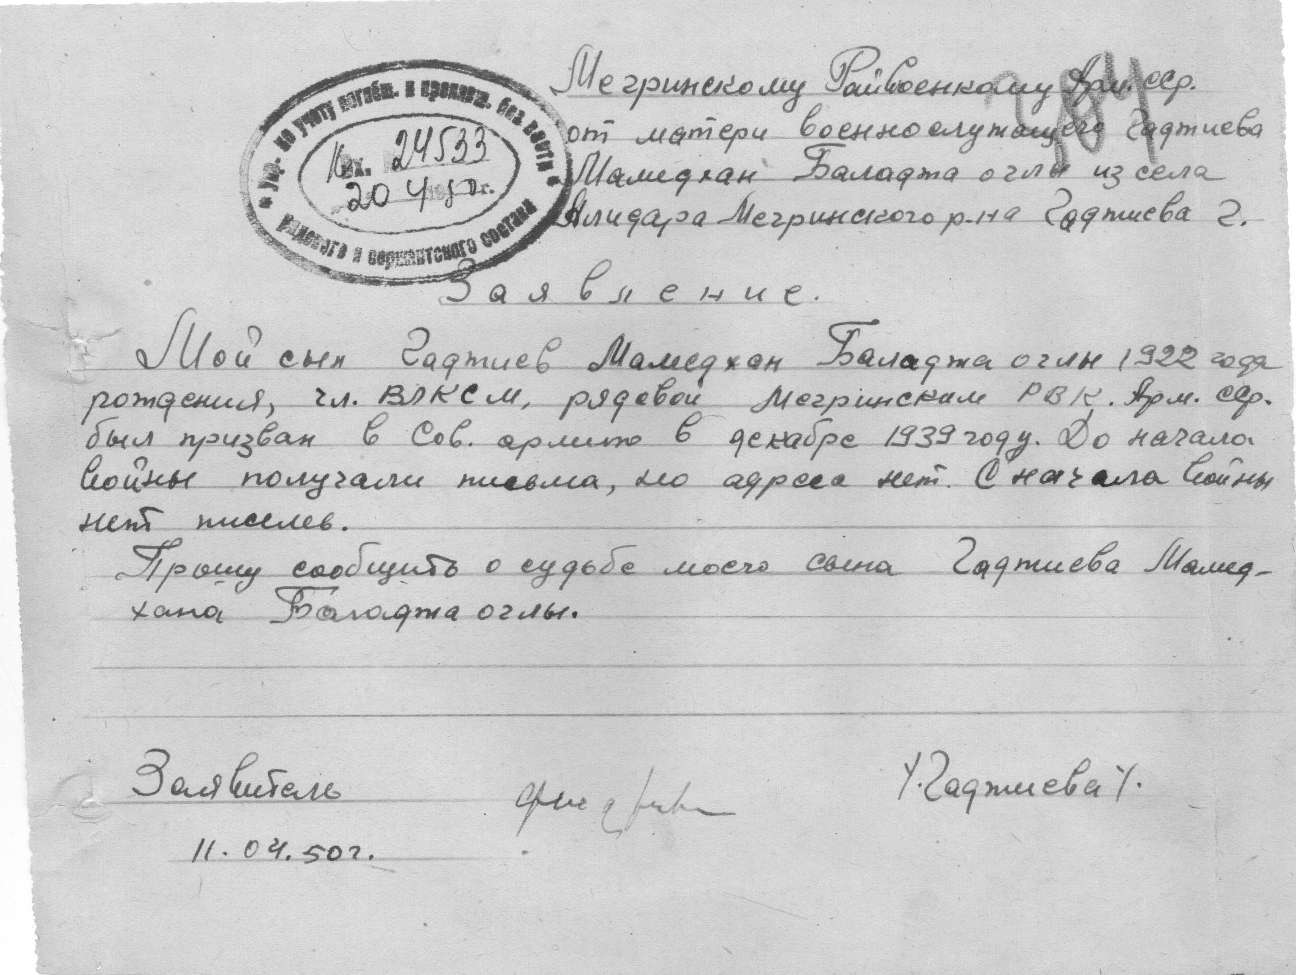 Мегринскому Райвоенкому Арм. сср.
от матери военнослужащего Гаджиева
Мамедхан Баладжа оглы из села
Алидара Мегринского р-на Гаджиева Г.
Упр. по учету погибш. и пропавш. без вести
Вх. 24533
20 4 1950 г.
рядового и сержантского состава
Заявление.
Мой сын Гаджиев Мамедхан Баладжа оглы 1922 года
рождения, чл. ВЛКСМ, рядовой Мегринским РВК. Арм. сср.
был призван в Сов. армию в декабре 1939 году. До начала
войны получали письма, но адреса нет. С начала войны
нет писем.
Прошу сообщить о судьбе моего сына Гаджиева Мамед-
хана Баладжа оглы.
Заявитель
(Гаджиева)
11.04.50 г.